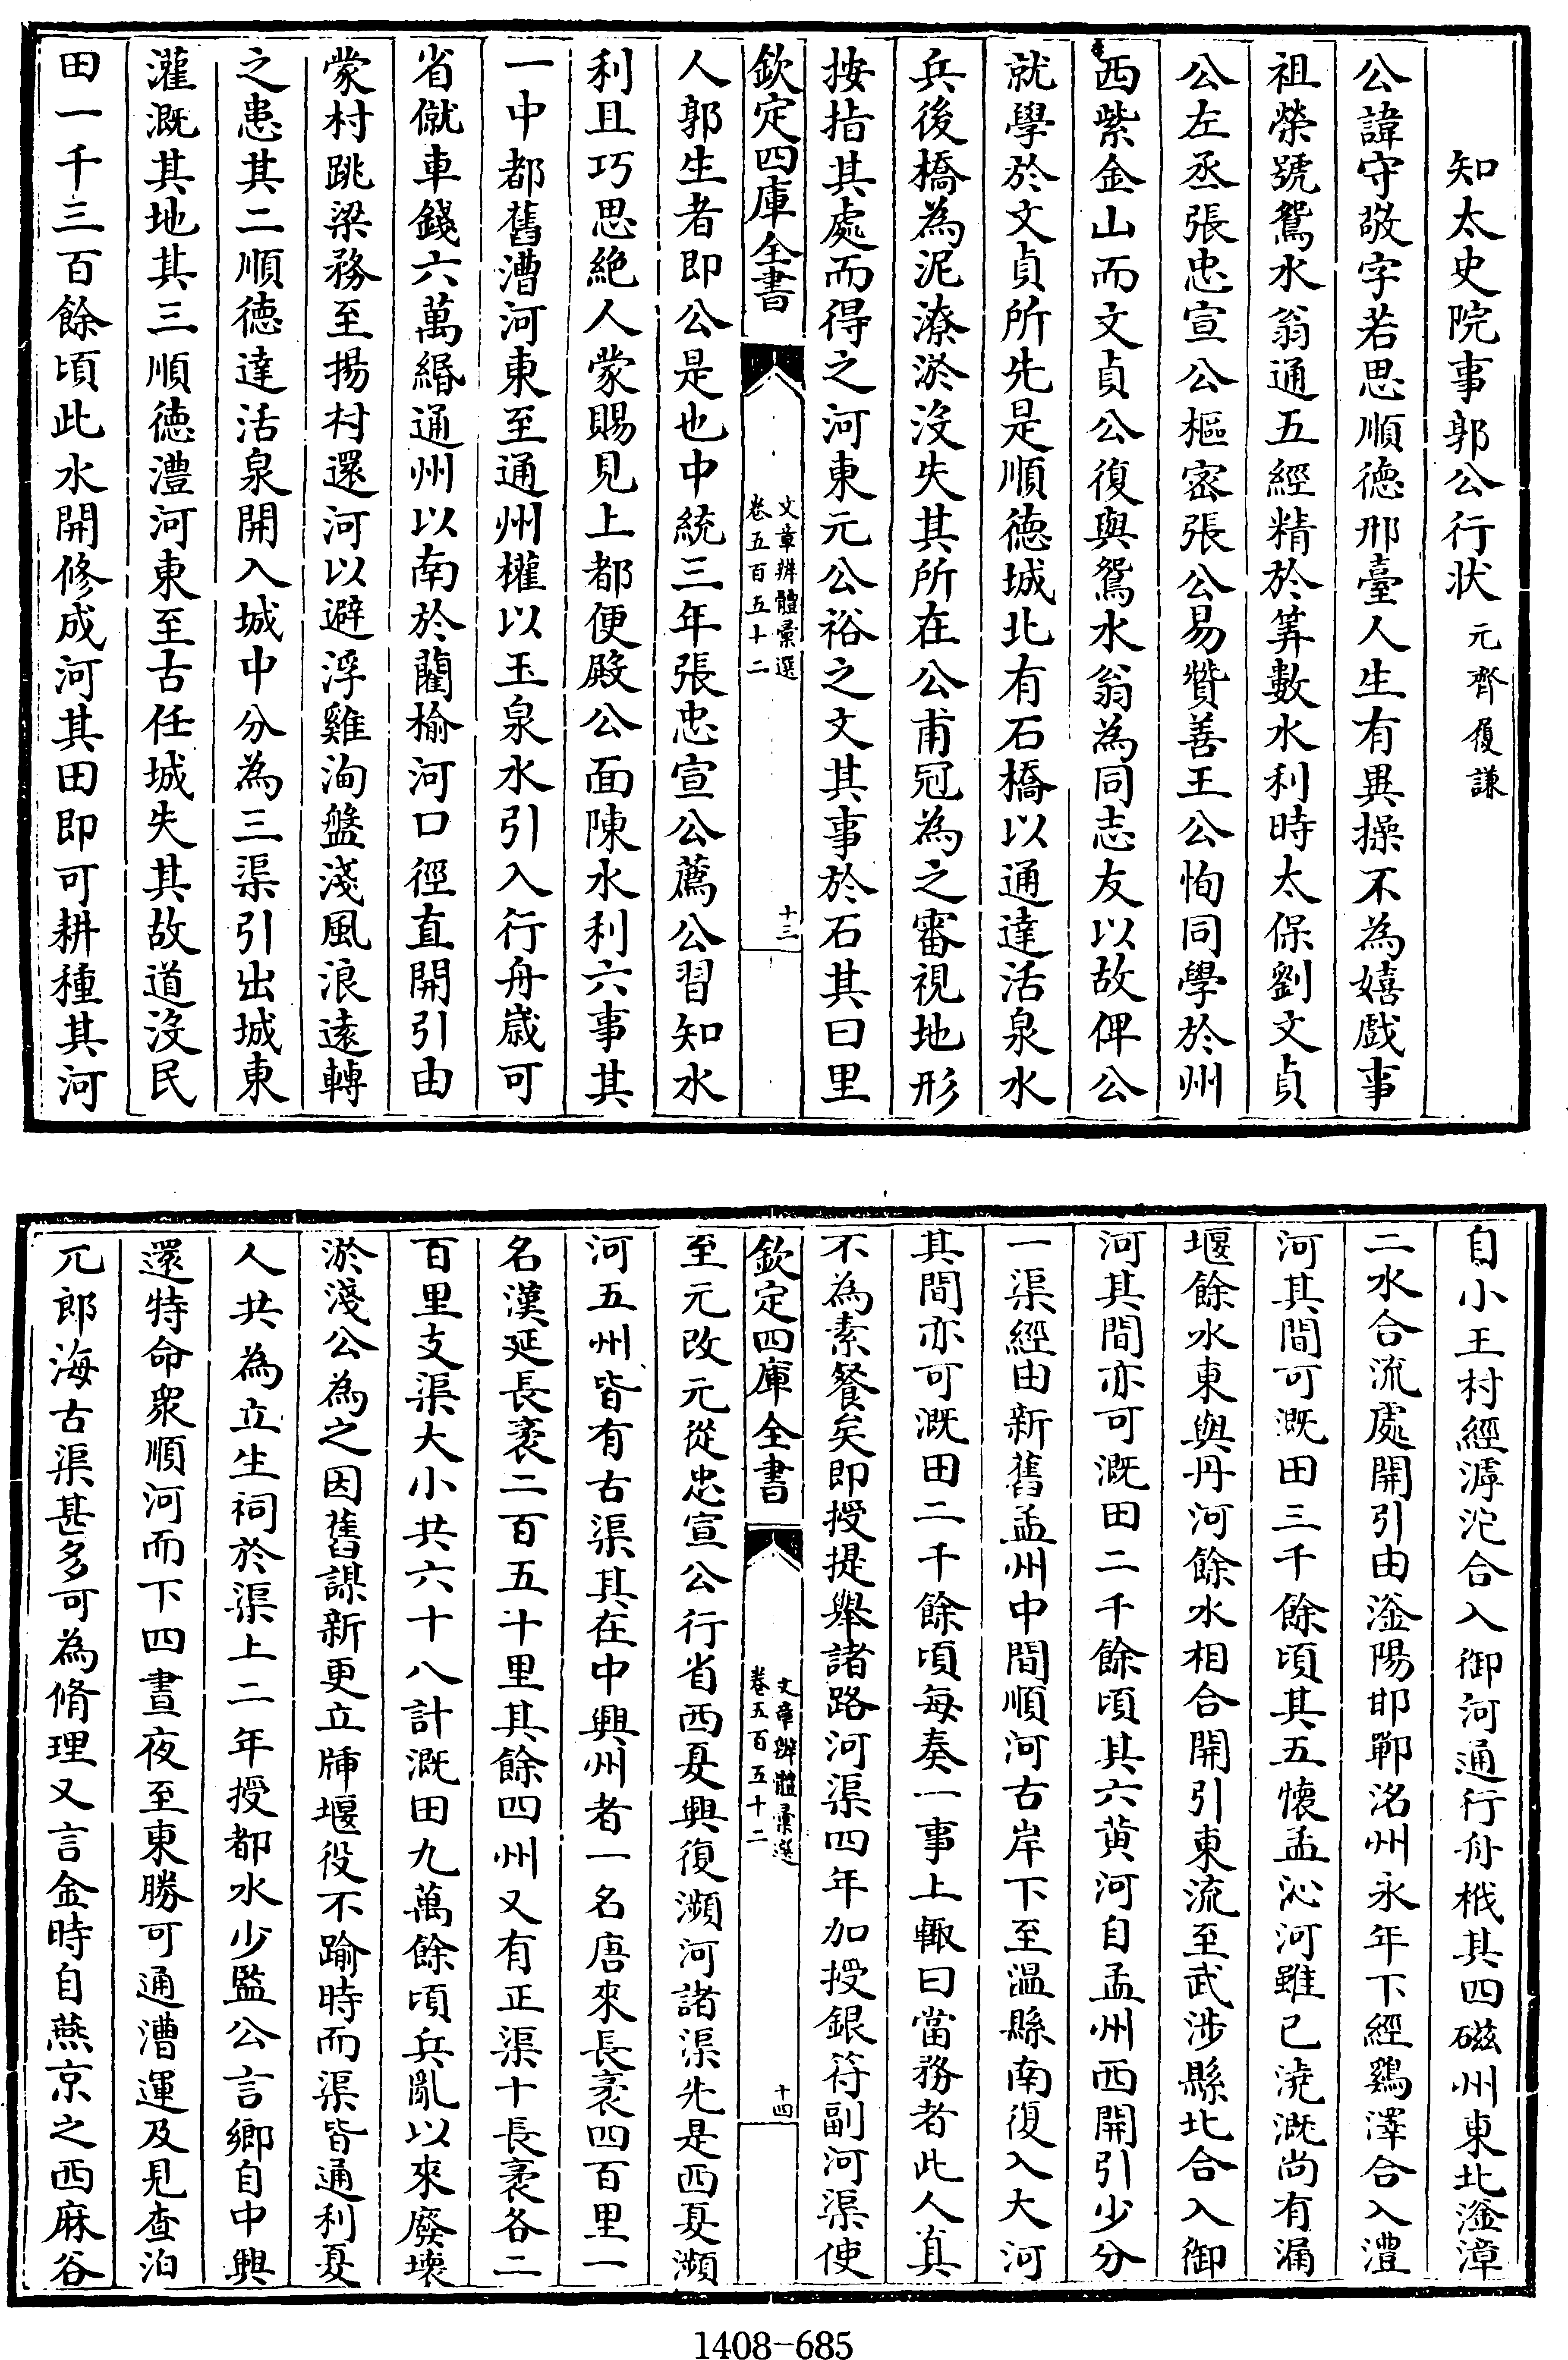 知太史院事郭公行狀 元齊履謙
公諱守敬字若思順德邢臺人生有異操不為嬉戲事
祖榮號鴛水翁通五經精於筭數水利時太保劉文貞
公左丞張忠宣公樞密張公易贊善王公恂同學於州
西紫金山而文貞公復與鴛水翁為同志友以故俾公
就學於文貞所先是順德城北有石橋以通達活泉水
兵後橋為泥潦淤沒失其所在公甫冠為之審視地形
按指其處而得之河東元公裕之文其事於石其曰里
欽定四庫全書
文章辨體彙選
卷五百五十二
十三
人郭生者即公是也中統三年張忠宣公薦公習知水
利且巧思絶人蒙賜見上都便殿公面陳水利六事其
一中都舊漕河東至通州權以玉泉水引入行舟歲可
省僦車錢六萬緡通州以南於藺榆河口徑直開引由
蒙村跳梁務至揚村還河以避浮雞洵盤淺風浪遠轉
之患其二順德達活泉開入城中分為三渠引出城東
灌溉其地其三順德澧河東至古任城失其故道沒民
田一千三百餘頃此水開修成河其田即可耕種其河
自小王村經滹沱合入御河通行舟栰其四磁州東北滏漳
二水合流處開引由滏陽邯鄲洺州永年下經鷄澤合入澧
河其間可溉田三千餘頃其五懷孟沁河雖已澆溉尚有漏
堰餘水東與丹河餘水相合開引東流至武涉縣北合入御
河其間亦可溉田二千餘頃其六黄河自孟州西開引少分
一渠經由新舊孟州中間順河古岸下至溫縣南復入大河
其間亦可溉田二千餘頃每奏一事上輒曰當務者此人真
不為素餐矣即授提舉諸路河渠四年加授銀符副河渠使
欽定四庫全書
文章辨體彙選
卷五百五十二
十四
至元改元從忠宣公行省西夏興復瀕河諸渠先是西夏瀕
河五州皆有古渠其在中興州者一名唐來長袤四百里一
名漢延長袤二百五十里其餘四州又有正渠十長袤各二
百里支渠大小共六十八計溉田九萬餘頃兵亂以來廢壞
淤淺公為之因舊謀新更立牐堰役不踰時而渠皆通利夏
人共為立生祠於渠上二年授都水少監公言鄉自中興
還特命衆順河而下四晝夜至東勝可通漕運及見查泊
兀郎海古渠甚多可為脩理又言金時自燕京之西麻谷
1408-685